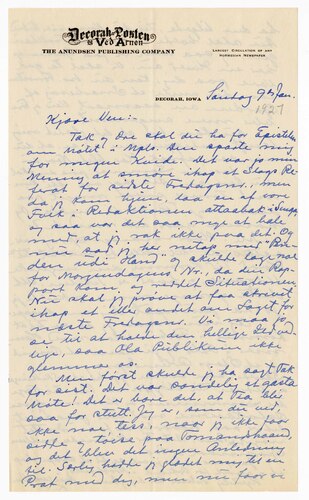 Decorah-Posten
& Ved Arnen
THE ANUNDSEN PUBLISHING COMPANY
LARGEST CIRCULATION OF ANY
NORWEGIAN NEWSPAPER
DECORAH, IOWA Søndag 9de Jan.
1927
Kjære Ven:-
Tak og Ære skal du ha for Epistelen
om Møtet i Mpls. Den sparte mig
for megen Kvide. Det var jo min
Mening at smøre ihop et Slags Re-
ferat for sidste Fredagsnr., men
da jeg kom hjem, laa en af vore
Folk i Redaktionen
og saa var det saa meget at hale
med, at jeg rak ikke paa det. Og
nu sad jeg her netop med "Pen-
den udi Haand" og skulde lage noe
for Morgendagens Nr., da din Rap-
port kom og reddet Situationen.
Nu skal jeg prøve at faa skrevet
ihop et eller andet om Laget for
næste Fredagsnr. Vi maa jo
se til at holde den hellige Ild ved-
lige, saa Ola Publikum ikke
glemmer os.
Men først skulde jeg ha sagt Tak
for sist. Det var sandelig et gasta
Møte! Det er bare det, at Tia blir
saa for stutt. Jeg er, som du ved,
ikke noe tess, naar jeg ikke faar
sidde og
og det blev det ingen Anledning
til. Særlig hadde jeg glædet mig til en
Prat med dig, men nu faar vi